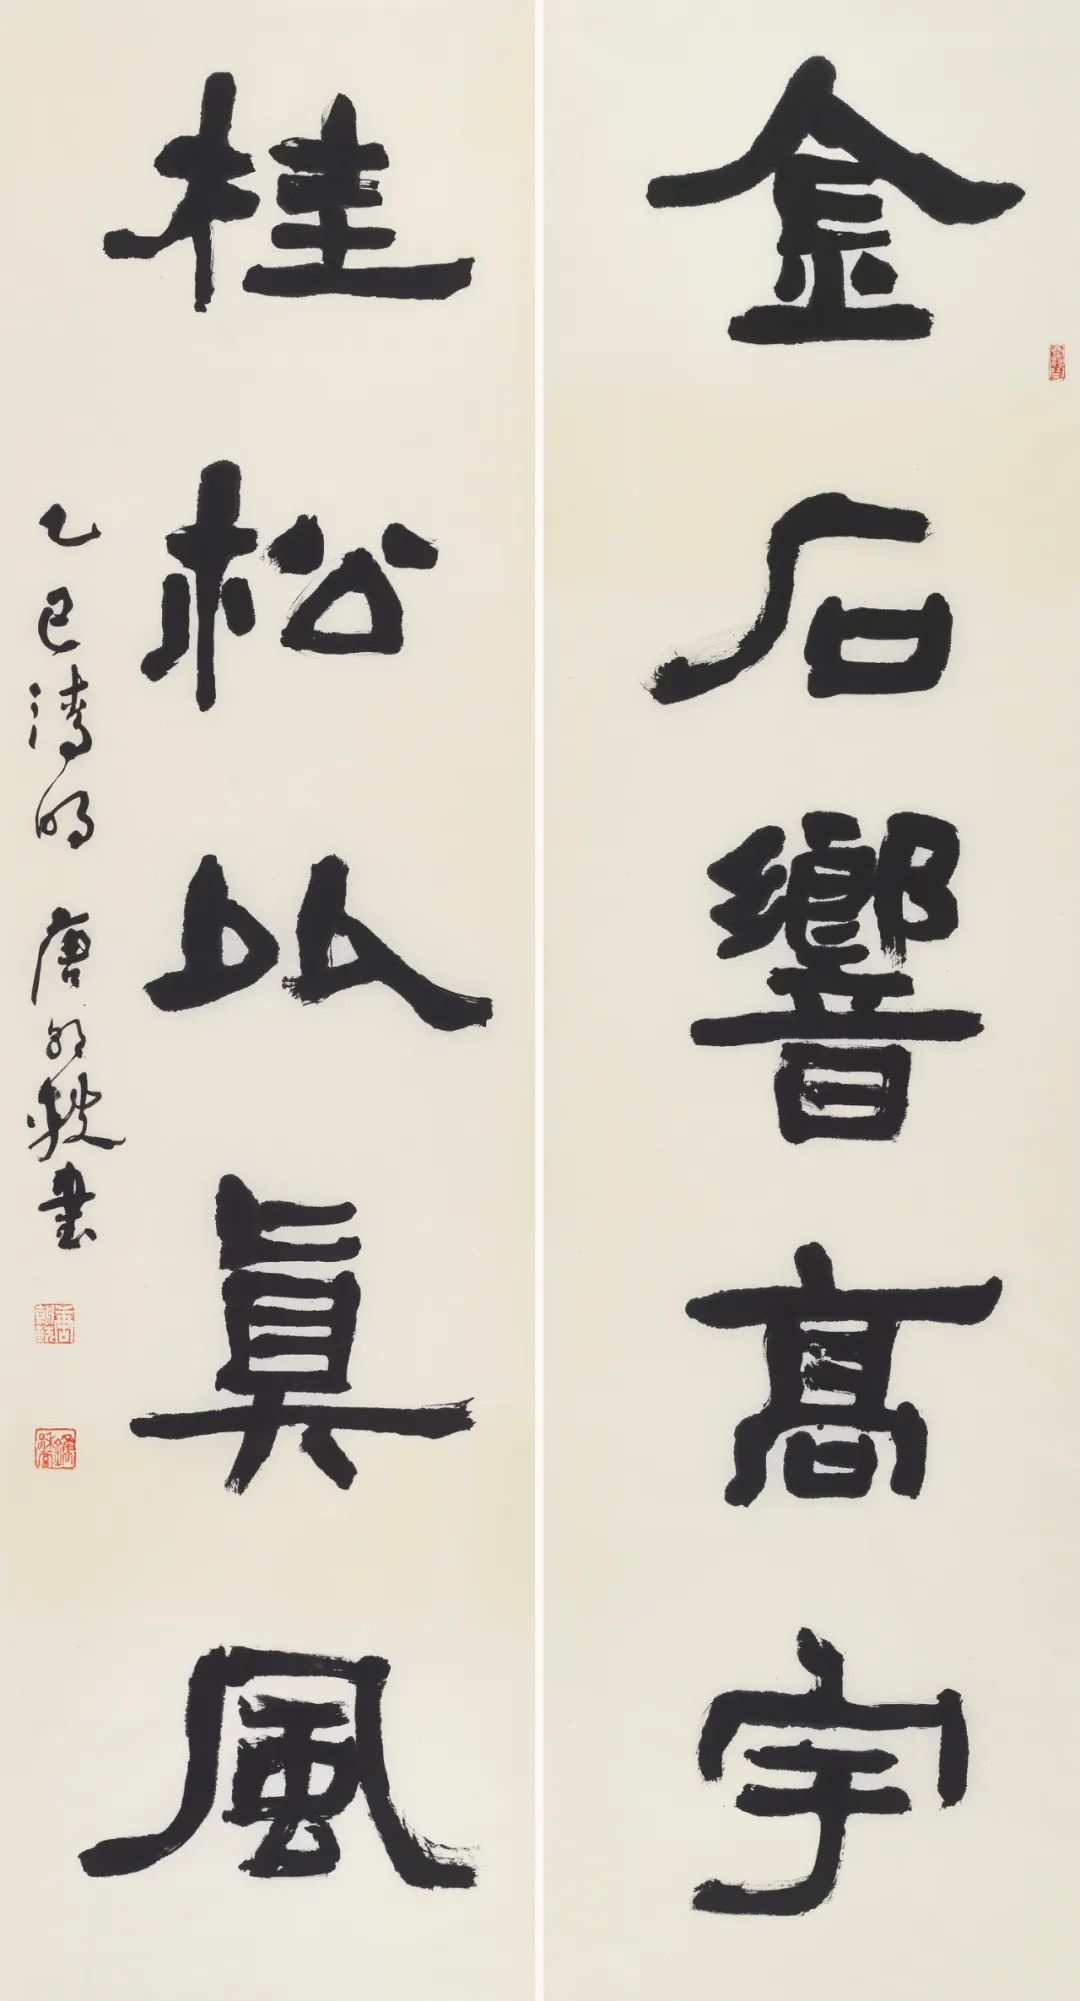 金石響高宇
桂松比真風
乙巳清明 唐朝轶書